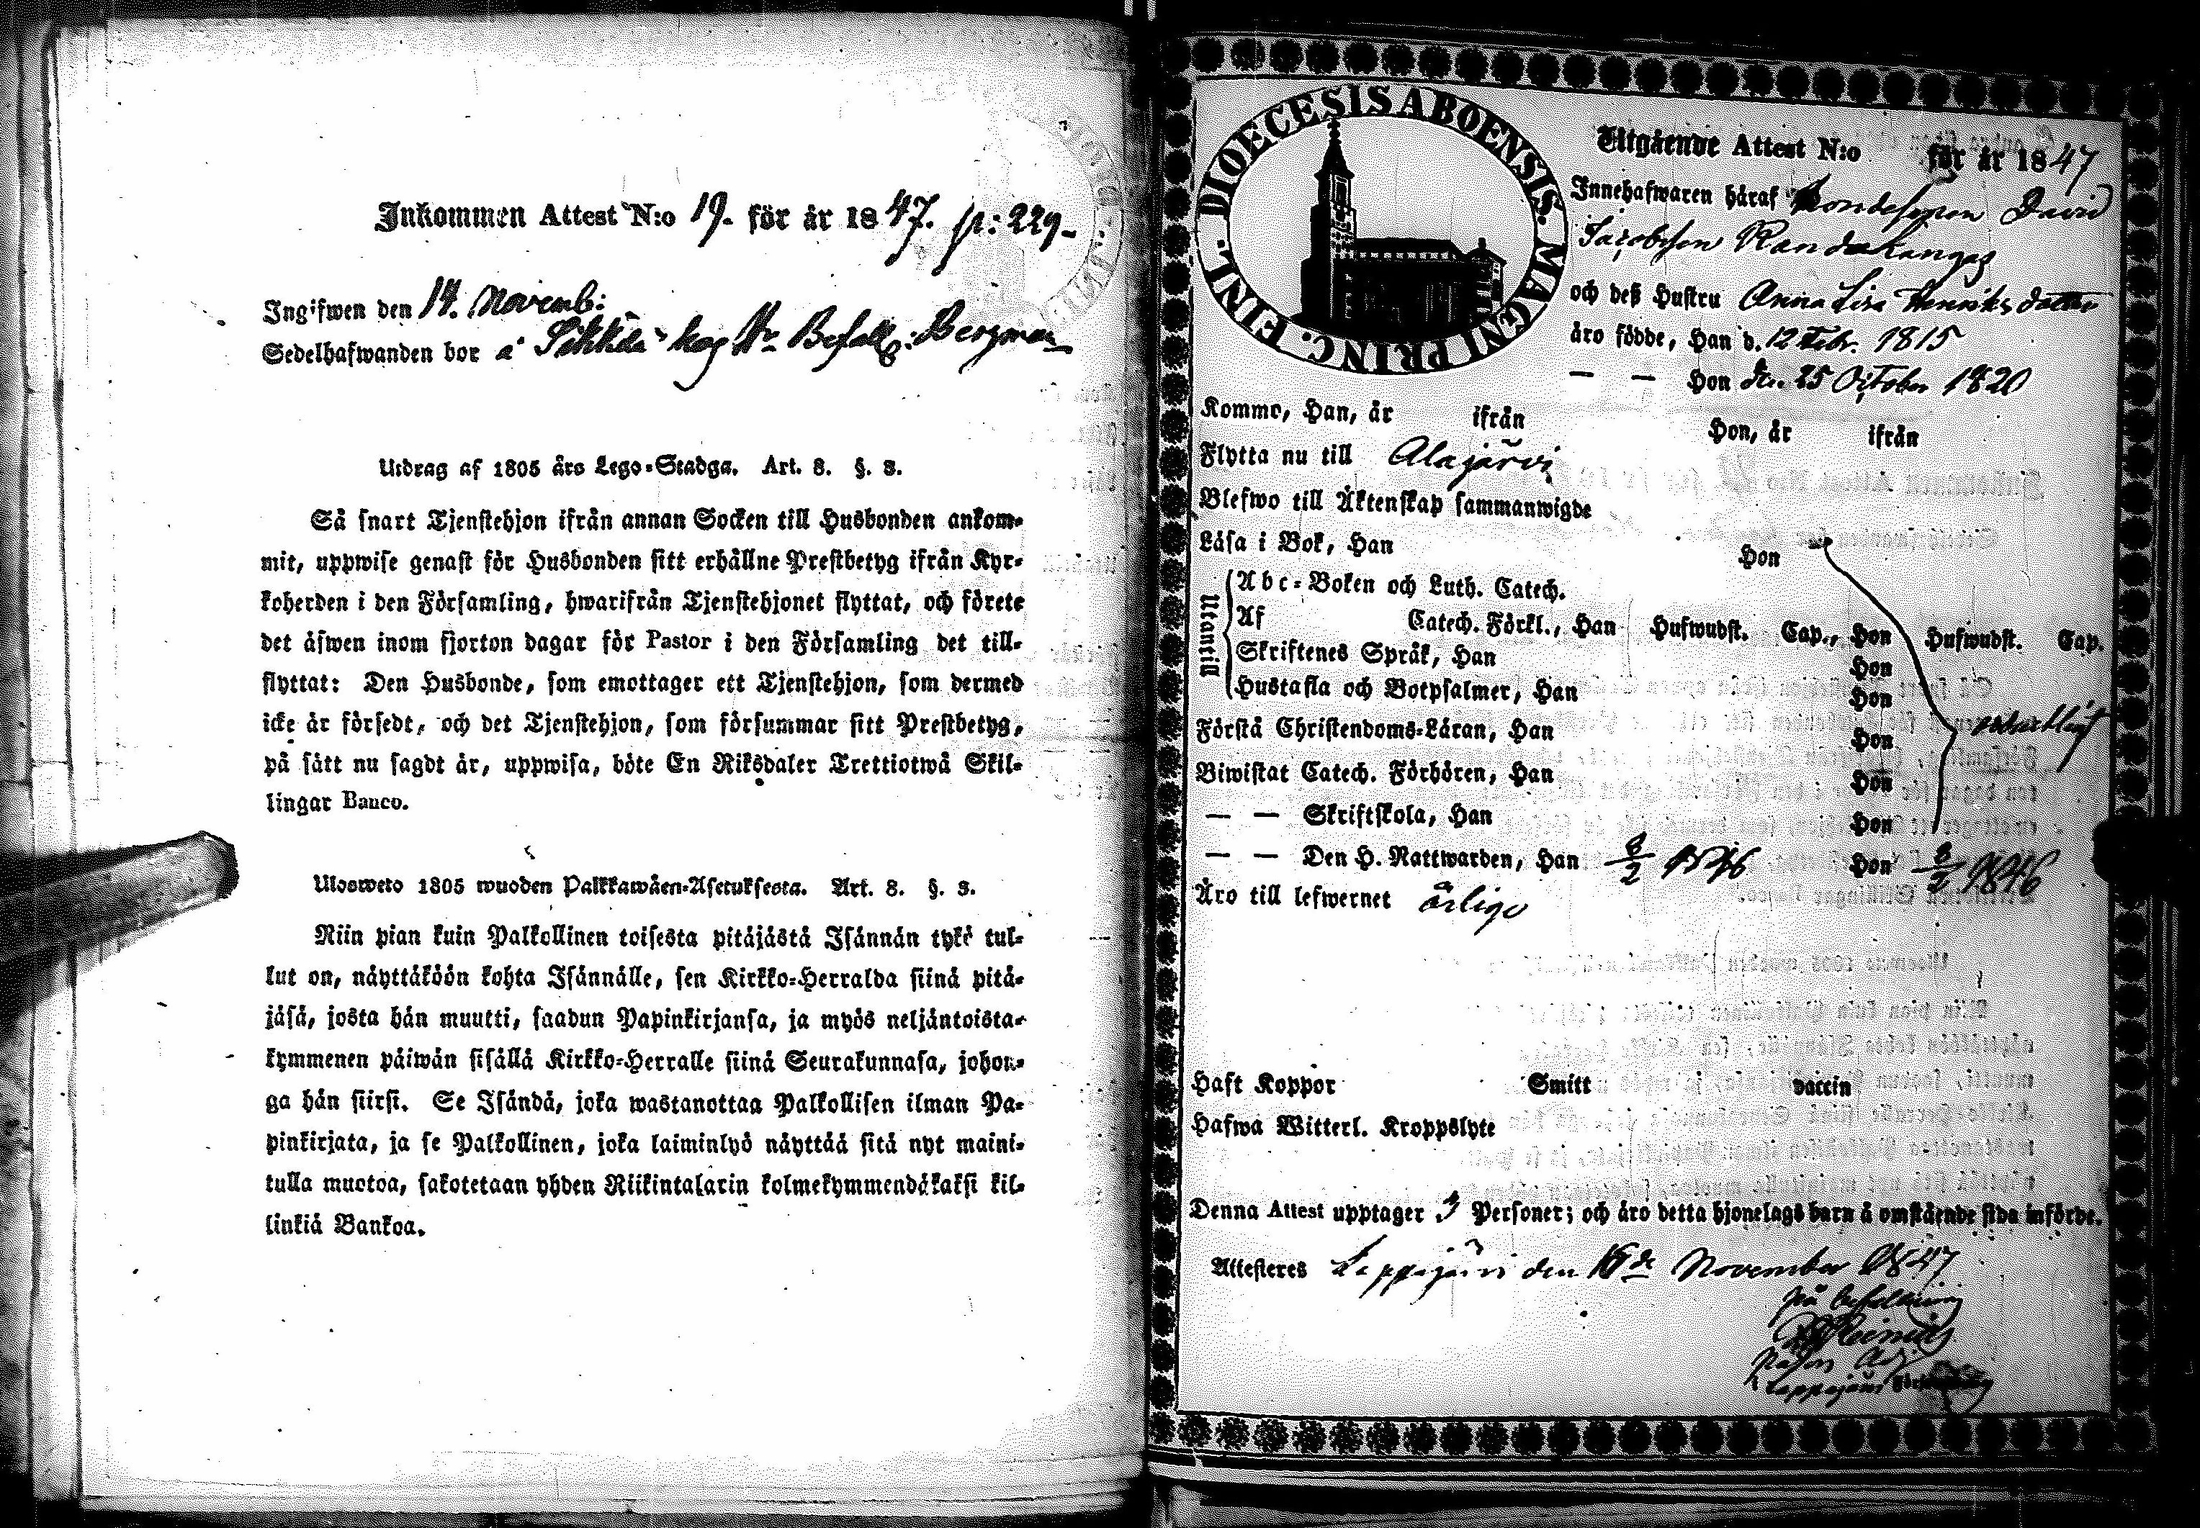 Inkommen Attest N:o 19. för år 1847. p: 229
Ingifwen den 14. Novemb:
Sedelhafwanden bor å hos Hr Befallg: Bergman
Utdrag af 1805 års Lego-Stadga. Art. 8. §. 3.
Så snart Tjenstehjon ifrån annan Socken till Husbonden ankom-
mit, uppwise genast för Husbonden sitt erhållne Prestbetyg ifrån Kyr-
koherden i den Församling, hwarifrån Tjenstehjonet flyttat, och förete
det äfwen inom fjorton dagar för Pastor i den Församling det till-
flyttat: Den Husbonde, som emottager ett Tjenstehjon, som dermed
icke är försedt, och det Tjenstehjon, som försummar sitt Prestbetyg,
på sätt nu sagdt är, uppwisa, böte En Riksdaler Trettiotwå Skil-
lingar Banco.
Ulosweto 1805 wuoden Palkkawäen-Asetuksesta. Art. 8. §. 3.
Niin pian kuin Palkollinen toisesta pitäjästä Isännän tykö tul-
lut on, näyttäköön kohta Isännälle, sen Kirkko-Herralda siinä pitä-
jäsä, josta hän muutti, saadun Papinkirjansa, ja myös neljäntoista-
kymmenen päiwän sisällä Kirkko-Herralle siinä Seurakunnasa, johon-
ga hän siirsi. Se Isändä, joka wastanottaa Palkollisen ilman Pa-
pinkirjata, ja se Palkollinen, joka laiminlyö näyttää sitä nyt maini-
tulla muotoa, sakotetaan yhden Riikintalarin kolmekymmendäkaksi kil-
linkiä Bankoa.
DIOECESIS ABOENSIS. MAGNI PRINC. FINL.
Utgående Attest N:o för år 1847
Innehafwaren häraf Bondesonen David
Jacobsson Kandakangas
och deß Hustru Anna Lisa Henriksdotter
äro födde, Han d. 12 Febr. 1815
— — Hon d. 25 October 1820
Kommo, Han, år ifrån Hon, år ifrån
Flytta nu till Alajärvi
Blefwo till Äktenskap sammanwigde
Läsa i Bok, Han Hon
Utantill
Abc-Boken och Luth. Catech.
Af Catech. Förkl., Han Hufwudst. Cap., Hon Hufwudst. Cap.
Skriftenes Språk, Han Hon
Hustafla och Botpsalmer, Han Hon
Förstå Christendoms-Läran, Han Hon
Biwistat Catech. Förhören, Han Hon
— — Skriftskola, Han Hon
— — Den H. Nattwarden, Han 8/2 1846 Hon 8/2 1846
Äro till lefwernet ärliga
Haft Koppor Smitt vaccin
Hafwa Witterl. Kroppslyte
Denna Attest upptager 3 Personer; och äro detta hjonelags barn å omstående sida införde.
Attesteres Lappajärvi den November 1847
på befallning
Pastors Adj.